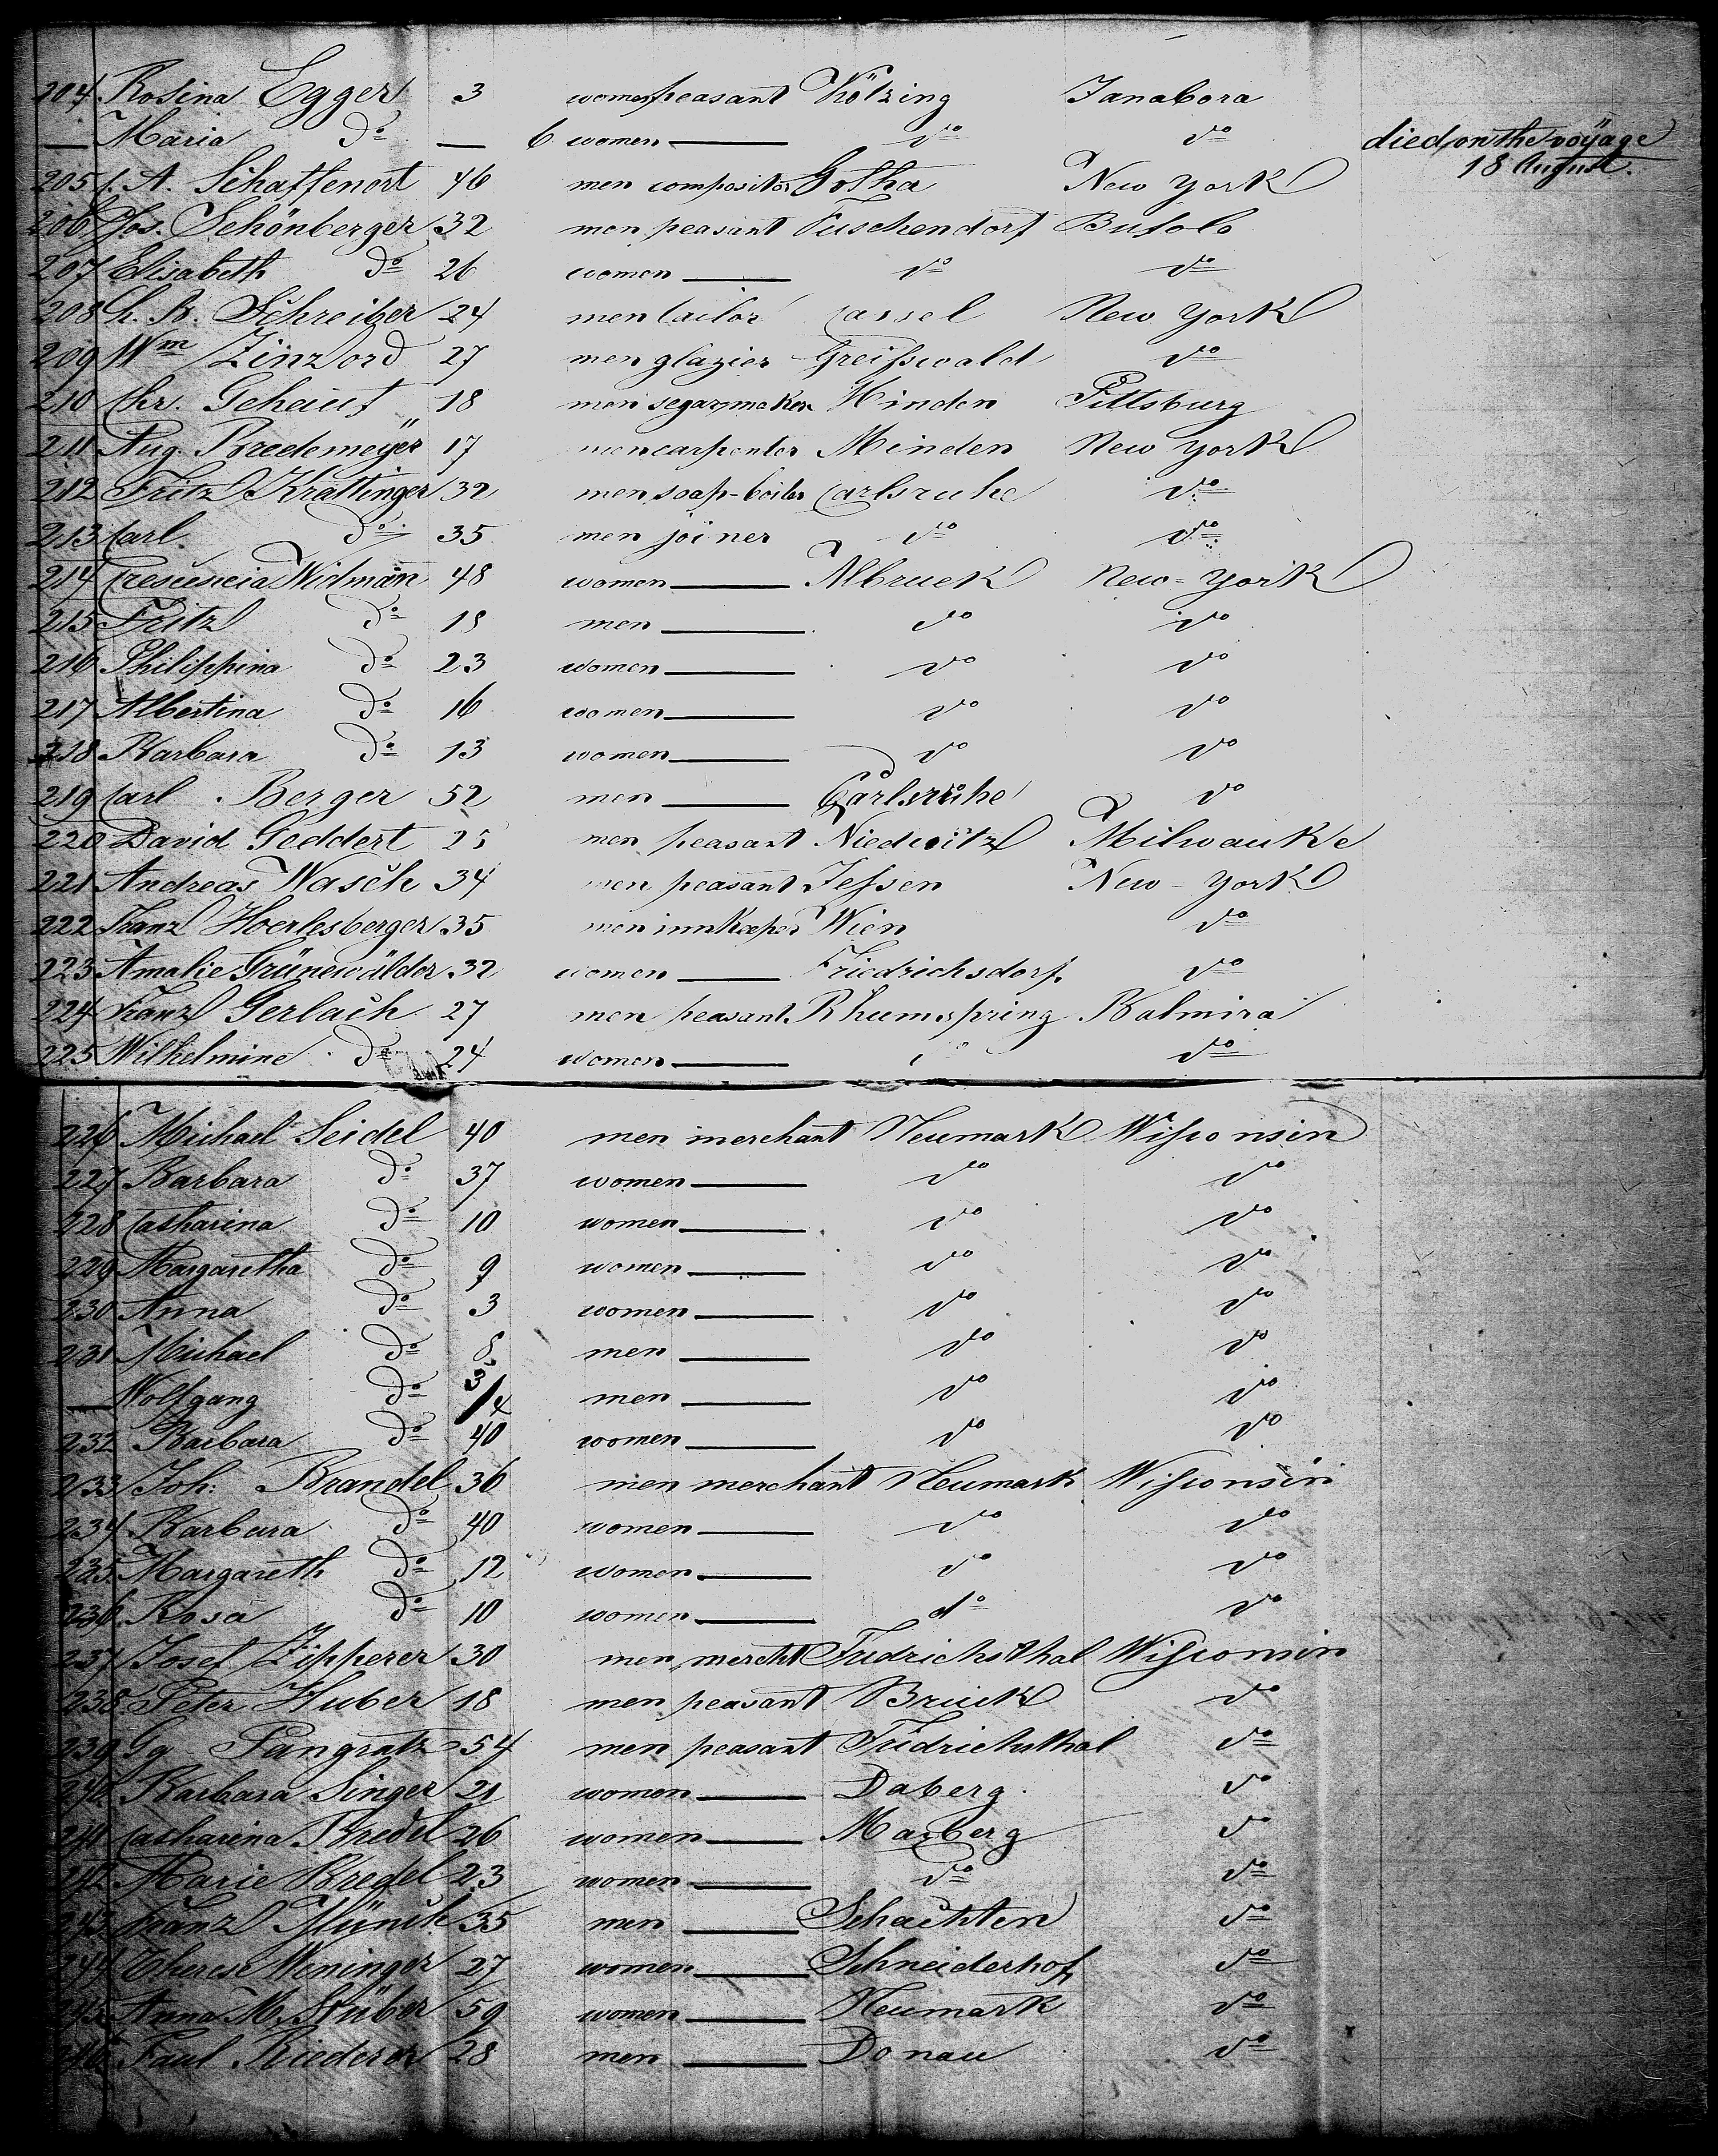 204 Rosina Egger 3 women peasant Kötzing Janabora
— Maria do — 6 women — do do died on the voyage
18 August.
205 C. A. Schaffenort 46 men compositor Gotha New York
206 Jos. Schönberger 32 men peasant Tuschendorf Bufolo
207 Elisabeth do 26 women — do do
208 H. B. Schreiber 24 men tailor Cassel New York
209 Wm Zinzord 27 men glazier Greifswald do
210 Chr. Gehauf 18 men segarmaker Hinden Pittsburg
211 Aug. Bredemeyer 17 men carpenter Minden New York
212 Fritz Krattinger 32 men soap-boiler Carlsruhe do
213 Carl do 35 men joiner do do
214 Crescencia Widmann 48 women — Albruck New-York
215 Fritz do 18 men — do do
216 Philippina do 23 women — do do
217 Albertina do 16 women — do do
218 Barbara do 13 women — do do
219 Carl Berger 52 men — Carlsruhe do
220 David Geddert 25 men peasant Niedwitz Milwauke
221 Andreas Wasch 34 men peasant Jessen New-York
222 Franz Hoerlesberger 35 men innkeeper Wien do
223 Amalie Grünewälder 32 women — Friedrichsdorf do
224 Franz Gerlach 27 men peasant Rhumspring Balmira
225 Wilhelmine do 24 women — do
226 Michael Seidel 40 men merchant Neumark Wisconsin
227 Barbara do 37 women — do do
228 Catharina do 10 women — do do
229 Margaretha do 9 women — do do
230 Anna do 3 women — do do
231 Michael do 8 men — do do
— Wolfgang do 3/4 men — do do
232 Barbara do 40 women — do do
233 Joh. Brandel 36 men merchant Neumark Wisconsin
234 Barbara do 40 women — do do
235 Margareth do 12 women — do do
236 Rosa do 10 women — do do
237 Josef Zipperer 30 men mercht Fridrichsthal Wisconsin
238 Peter Huber 18 men peasant Bruck do
239 Gg Pangratz 54 men peasant Fridrichsthal do
240 Barbara Singer 21 women — Daberg do
241 Catharina Bredel 26 women — Marberg do
242 Marie Bredel 23 women — do do
243 Franz Münch 35 men — Schachten do
244 Therese Weninger 27 women — Schneiderhof do
245 Anna M. Stüber 59 women — Neumark do
246 Paul Riederer 28 men — Donau do